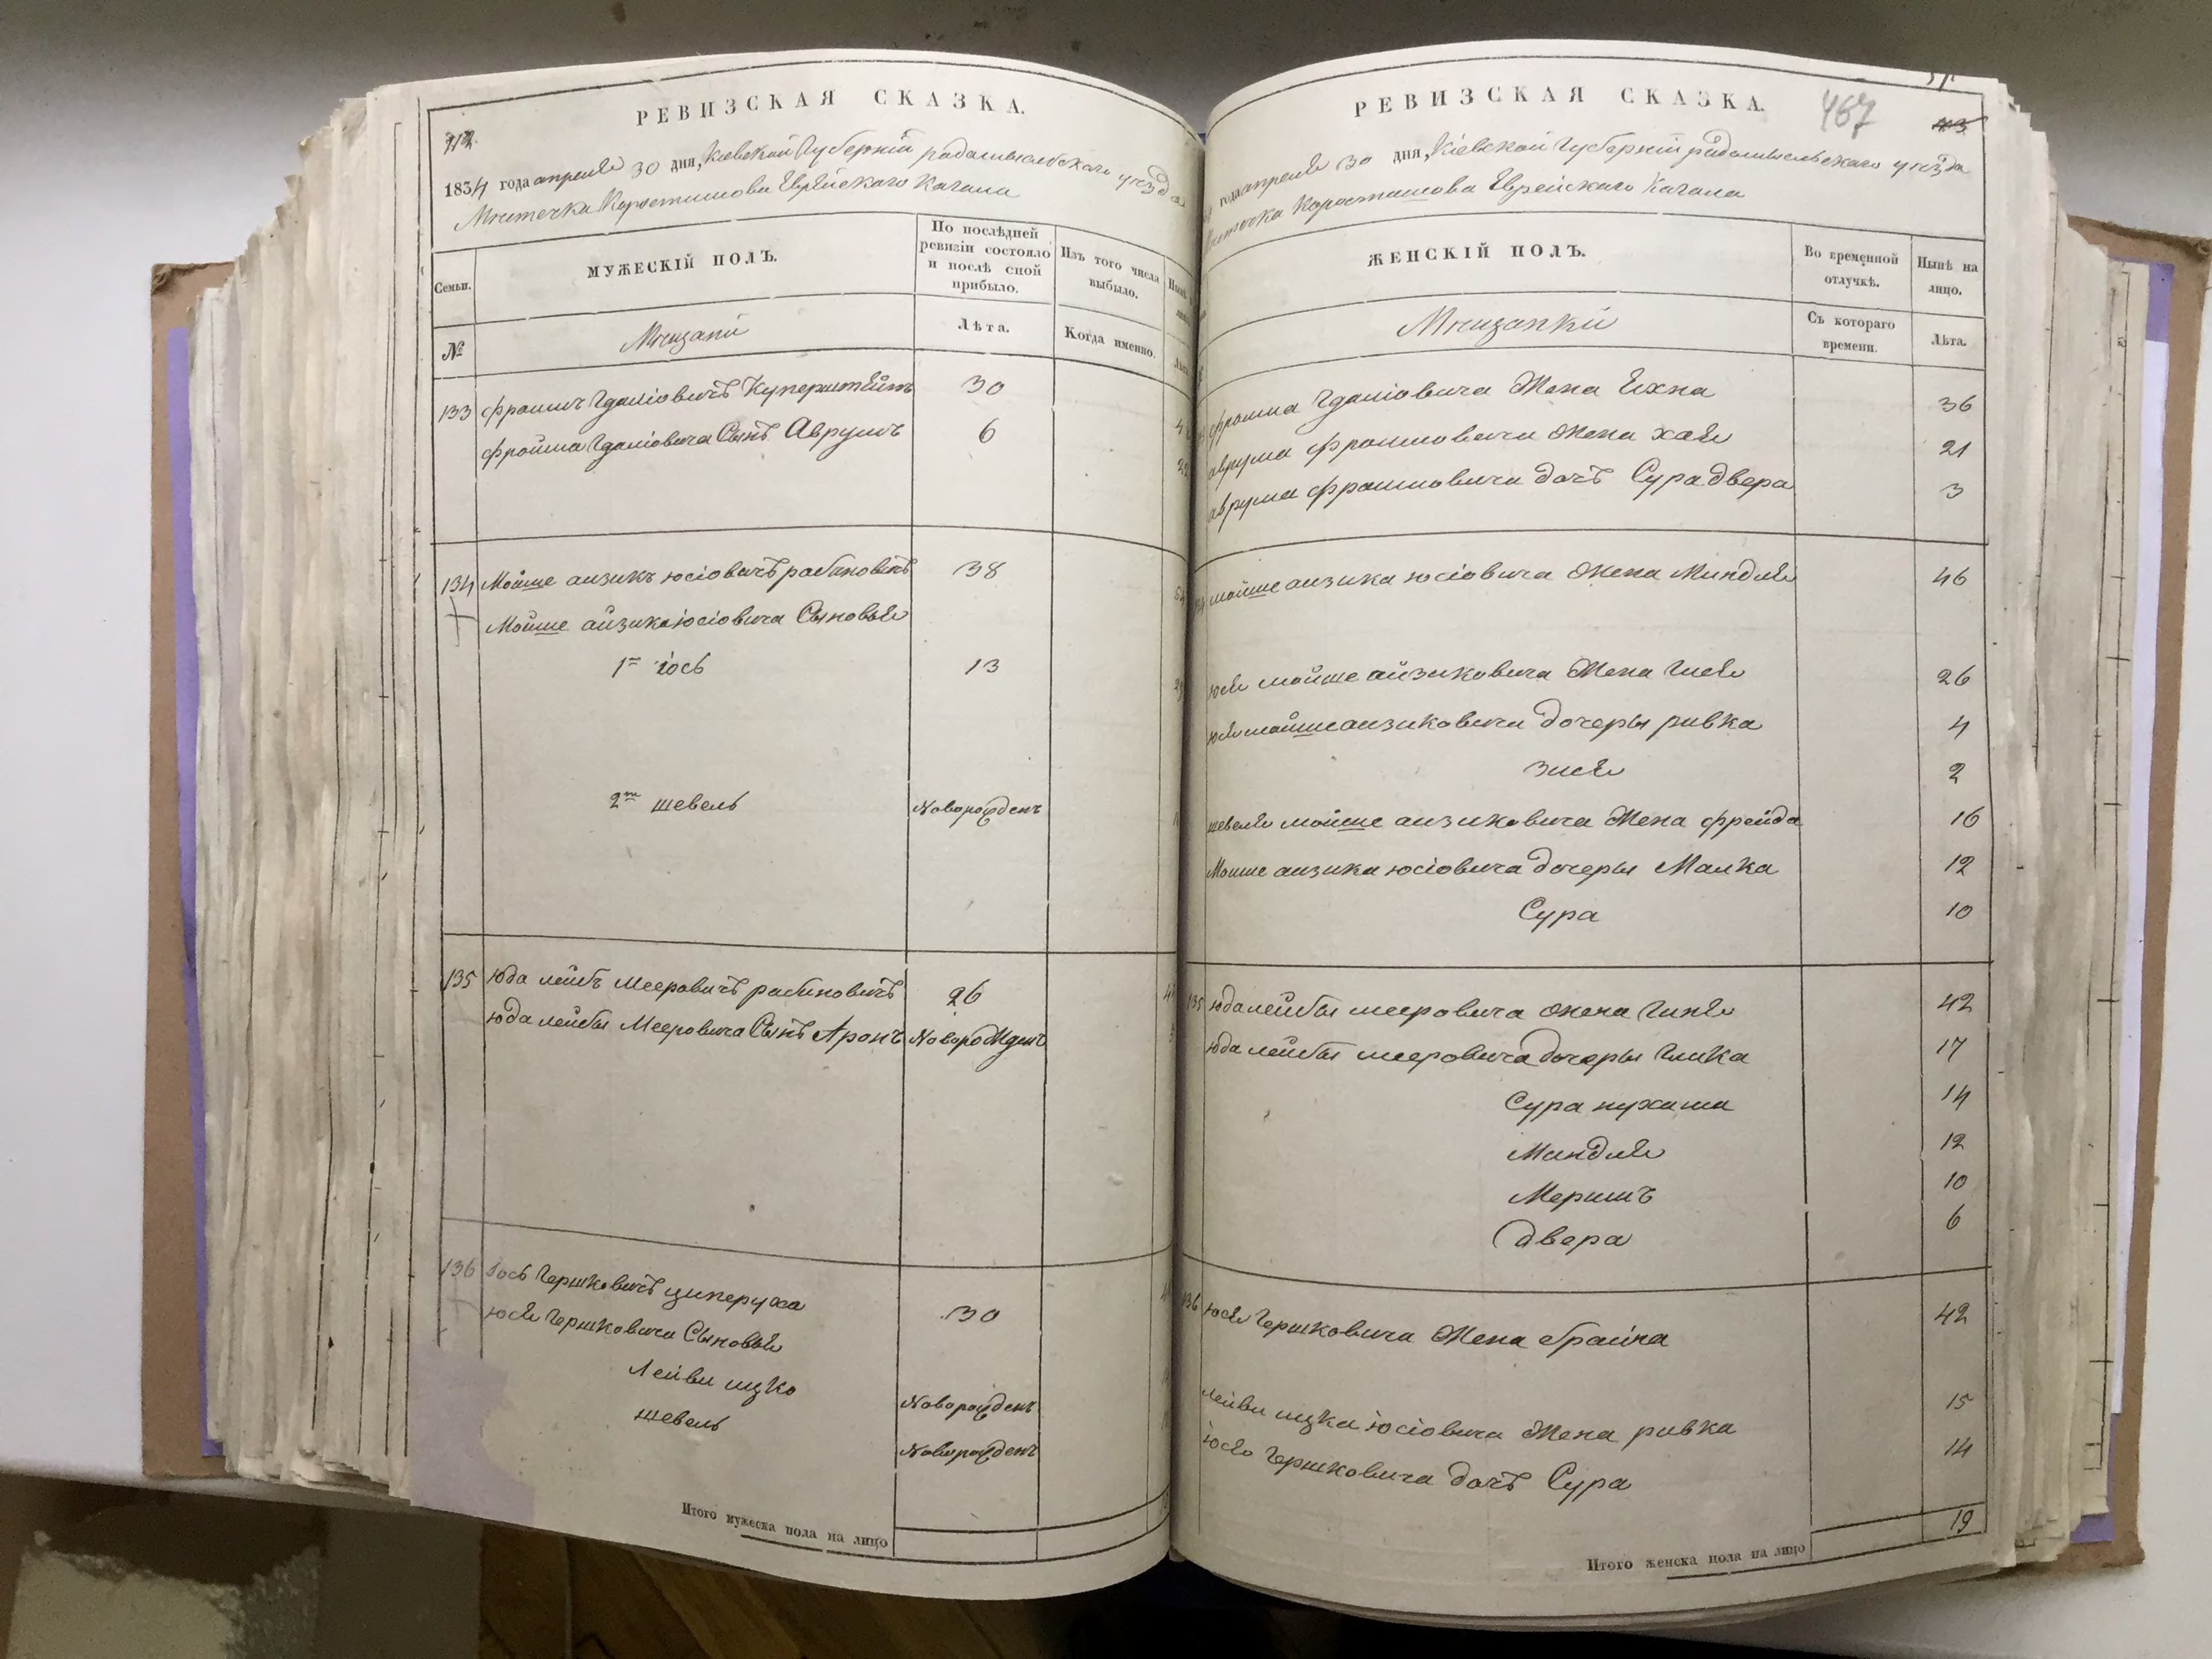 РЕВИЗСКАЯ СКАЗКА.
1834 года апреля 30 дня, Кіевской Губерніи радомысльского уезда
Мистечка Коростишова Еврейского Кагала
Семьи.
МУЖЕСКІЙ ПОЛЪ.
По послѣдней ревизіи состояло и послѣ сной прибыло.
Изъ того числа выбыло.
№
Мещане
Лѣта.
Когда именно.
133 фроимъ Гдаліовичъ Куперштейнъ 30
фройма Гдаліовича Сынъ Аврумъ 6
134 Мойше аизикъ юсіовичъ рабиновичъ 38
Мойше айзика іосіовича Сыновья
1й іось 13
2й шевель Новорожденъ
135 юда лейбъ Мееровичъ рабиновичъ 26
юда лейбы Мееровича Сынъ Аронъ Новорожденъ
136 іось Гершковичъ циперуха 30
юся Гершковича Сыновья
Лейви ицко Новорожденъ
шевель Новорожденъ
Итого мужеска пола на лицо
РЕВИЗСКАЯ СКАЗКА.
467
года апреля 30 дня, Кіевской Губерніи радомысльского уезда
Коростишова Еврейского Кагала
ЖЕНСКІЙ ПОЛЪ.
Во временной отлучкѣ.
Нынѣ на лицо.
Мещанки
Съ котораго времени.
Лѣта.
фроима Гдаліовича Жена Ихна 36
аврума фроимовича Жена хая 21
аврума фроимовича дочъ Сура двера 3
мойше аизика юсіовича Жена Миндля 46
юся мойше айзиковича Жена Гися 26
юся мойше аизиковича дочеры ривка 4
зися 2
шевеля мойше аизиковича Жена фрейда 16
Мойше аизика юсіовича дочеры Малка 12
Сура 10
135 юда лейбы мееровича жена Гиня 42
юда лейбы мееровича дочеры Гитка 17
Сура нухама 14
Миндля 12
Мериимъ 10
двера 6
136 юся Гершковича Жена брайна 42
лейви ицка іосіовича Жена ривка 15
іося Гершковича дочъ Сура 14
Итого женска пола на лицо 19